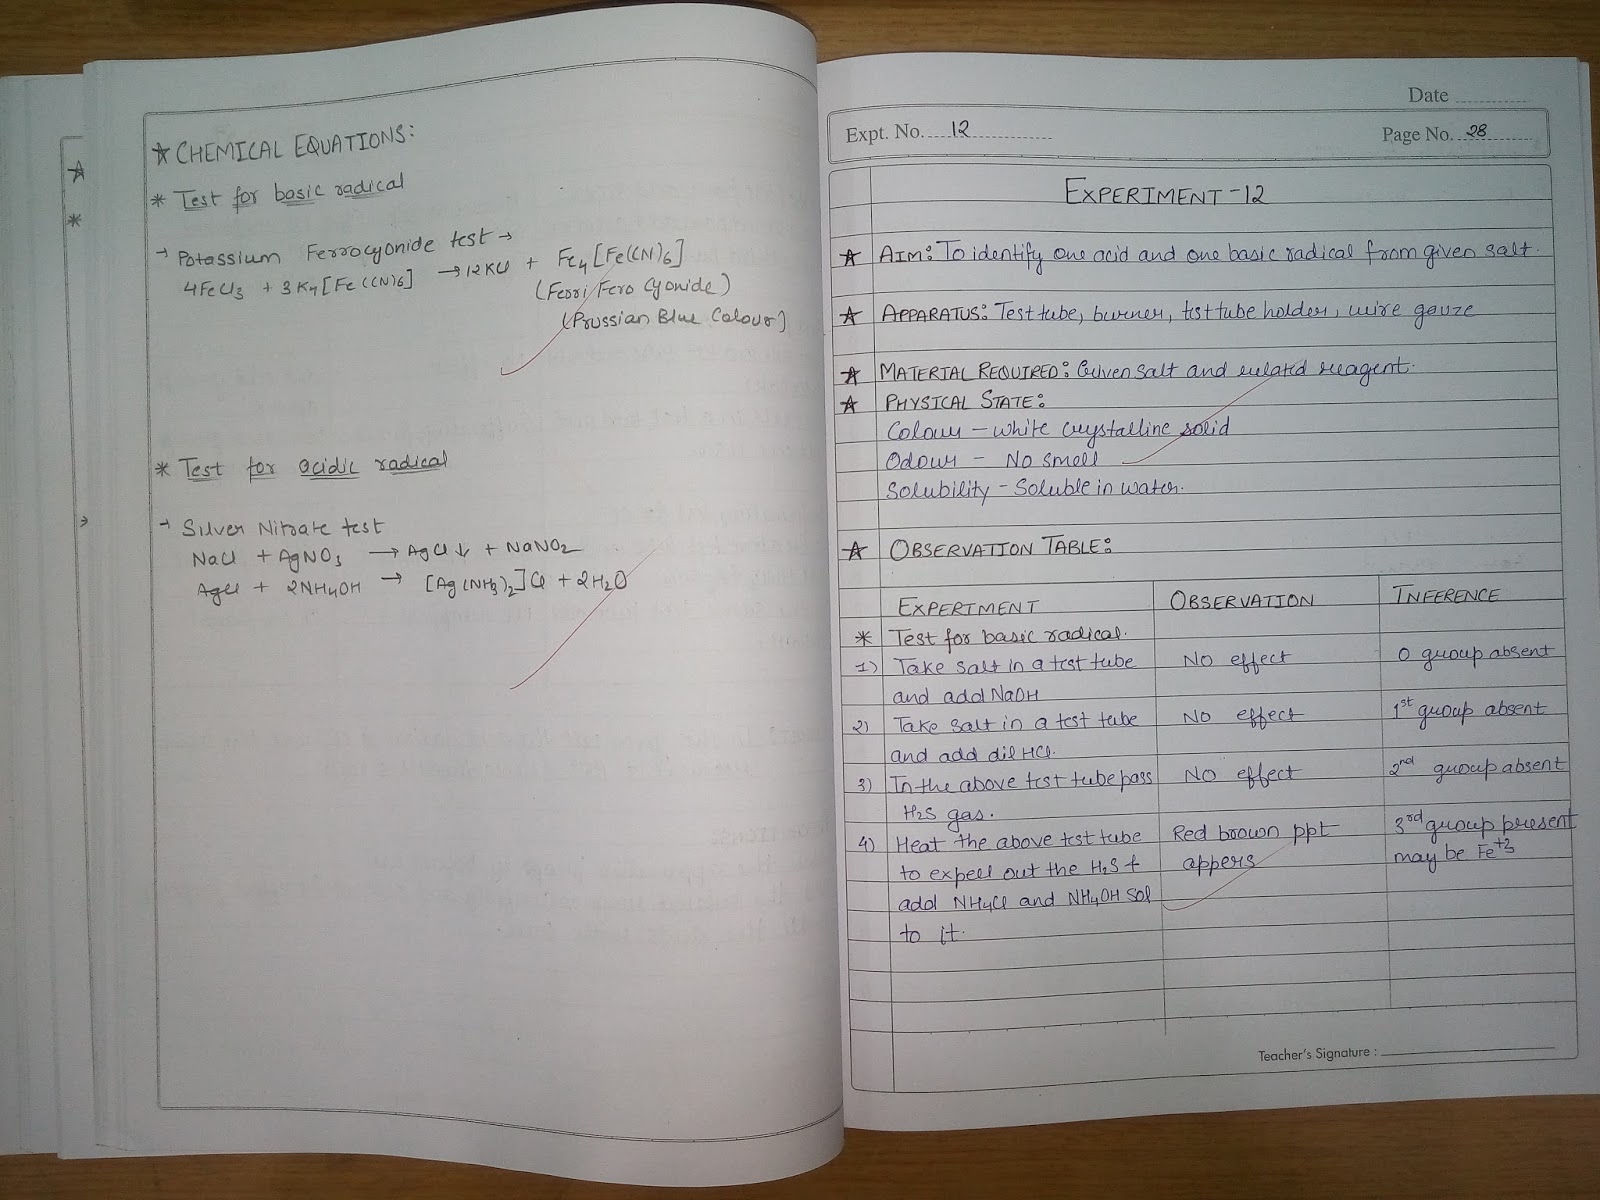 ★ CHEMICAL EQUATIONS:
* Test for basic radical
→ Potassium Ferrocyonide test →
4FeCl3 + 3K4[Fe(CN)6] → 12KCl + Fe4[Fe(CN)6]
(Ferri Fero Cyonide)
(Prussian Blue Colour)
* Test for acidic radical
→ Silver Nitrate test
NaCl + AgNO3 → AgCl↓ + NaNO2
AgCl + 2NH4OH → [Ag(NH3)2]Cl + 2H2O
Date
Expt. No. 12 Page No. 28
EXPERIMENT-12
★ AIM: To identify one acid and one basic radical from given salt.
★ APPARATUS: Test tube, burner, test tube holder, wire gauze
★ MATERIAL REQUIRED: Given salt and related reagent.
★ PHYSICAL STATE:
Colour - white crystalline solid
Odour - No smell
Solubility - Soluble in water.
★ OBSERVATION TABLE:
EXPERIMENT OBSERVATION INFERENCE
* Test for basic radical.
1) Take salt in a test tube No effect 0 group absent
and add NaOH
2) Take salt in a test tube No effect 1st group absent
and add dil HCl.
3) In the above test tube pass No effect 2nd group absent
H2S gas.
4) Heat the above test tube Red brown ppt 3rd group present
to expell out the H2S + appers may be Fe+3
add NH4Cl and NH4OH sol
to it.
Teacher's Signature :